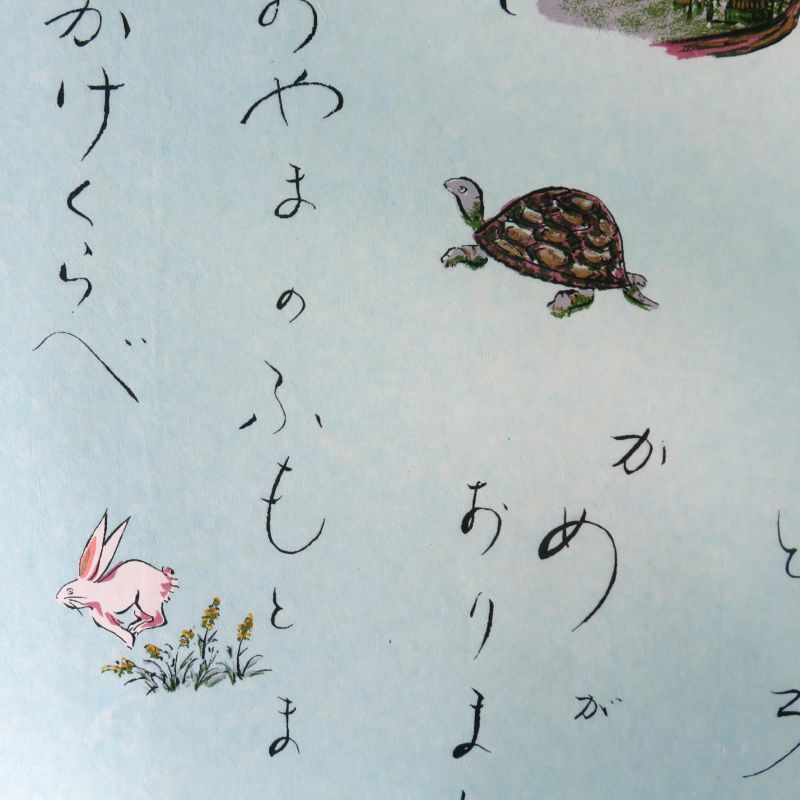 とろ
かめが
おりま
のやまのふもとま
かけくらべ